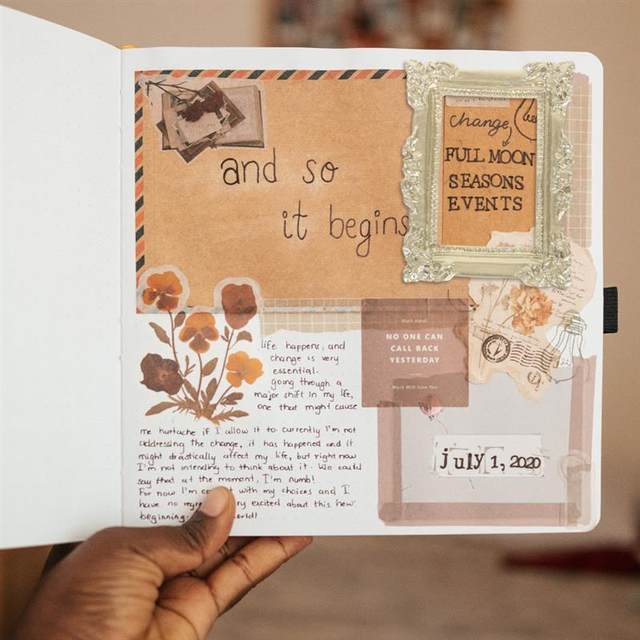 and so
it begins
change,
FULL MOON
SEASONS
EVENTS
NO ONE CAN
CALL BACK
YESTERDAY
life happens, and
change is very
essential.
going through a
major shift in my life,
one that might cause
me hurtache if I allow it to currently I'm not
addressing the change, it has happened and it
might drastically affect my life, but right now
I'm not intending to think about it. We could
say that at the moment, I'm numb!
For now I'm with my choices and I
have no excited about this new
beginning
july 1, 2020